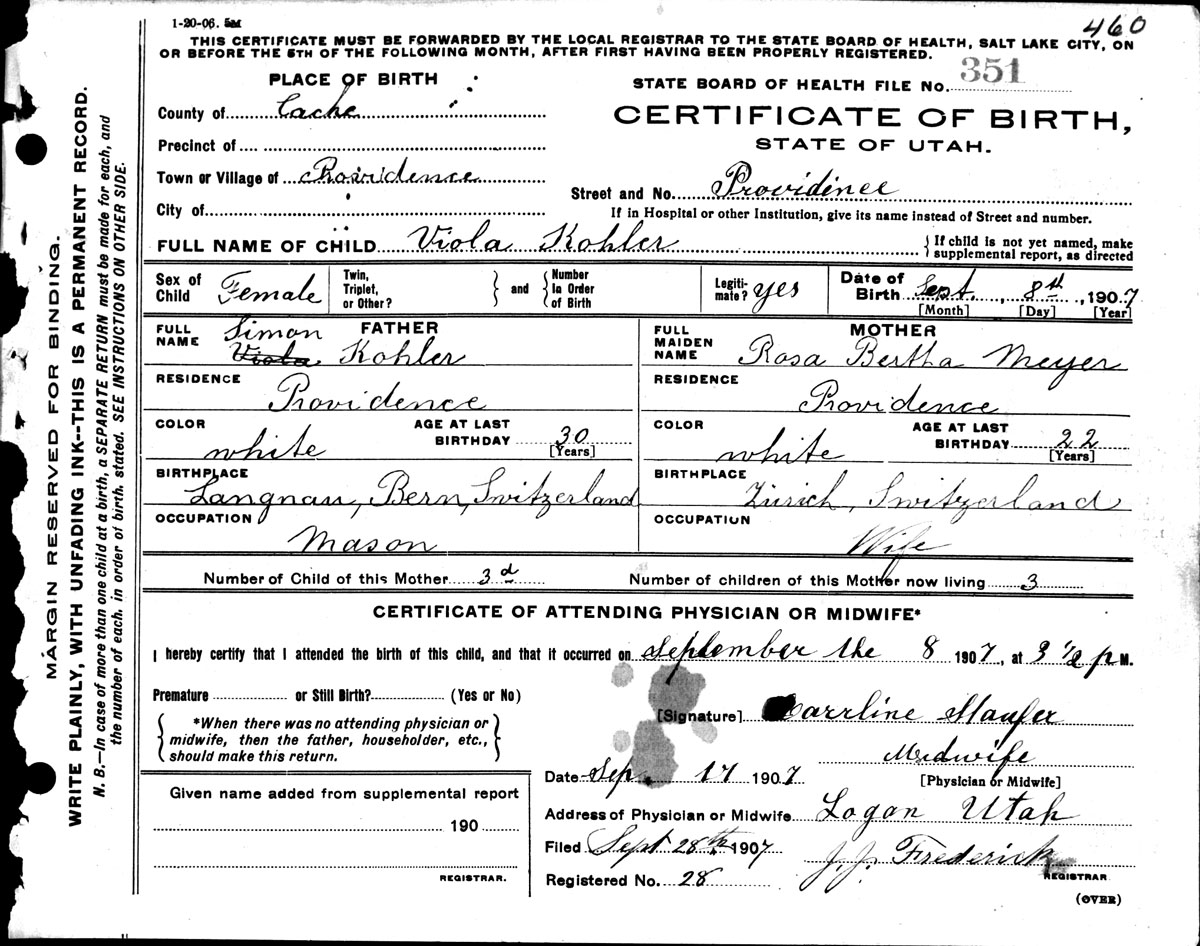 1-20-06.
460
THIS CERTIFICATE MUST BE FORWARDED BY THE LOCAL REGISTRAR TO THE STATE BOARD OF HEALTH, SALT LAKE CITY, ON
OR BEFORE THE 5TH OF THE FOLLOWING MONTH, AFTER FIRST HAVING BEEN PROPERLY REGISTERED.
PLACE OF BIRTH
STATE BOARD OF HEALTH FILE No. 351
County of Cache
CERTIFICATE OF BIRTH,
Precinct of
STATE OF UTAH.
Town or Village of Providence
Street and No. Providence
City of
If in Hospital or other Institution, give its name instead of Street and number.
FULL NAME OF CHILD Viola Kohler
{ If child is not yet named, make
supplemental report, as directed
Sex of Child Female
Twin, Triplet, or Other? } and { Number In Order of Birth
Legiti-mate? yes
Date of Birth Sept. 8th, 1907
[Month] [Day] [Year]
FATHER
FULL NAME Simon Viola Kohler
MOTHER
FULL MAIDEN NAME Rosa Bertha Meyer
RESIDENCE Providence
RESIDENCE Providence
COLOR white
AGE AT LAST BIRTHDAY 30 [Years]
COLOR white
AGE AT LAST BIRTHDAY 22 [Years]
BIRTHPLACE Langnau, Bern, Switzerland
BIRTHPLACE Zürich, Switzerland
OCCUPATION Mason
OCCUPATION Wife
Number of Child of this Mother 3d
Number of children of this Mother now living 3
CERTIFICATE OF ATTENDING PHYSICIAN OR MIDWIFE*
I hereby certify that I attended the birth of this child, and that it occurred on September the 8 1907, at 3 1/2 p M.
Premature or Still Birth? (Yes or No)
[Signature] Carrline Staufer
{ *When there was no attending physician or
midwife, then the father, householder, etc.,
should make this return. }
Midwife
[Physician or Midwife]
Date Sep. 17 1907
Given name added from supplemental report
Address of Physician or Midwife Logan Utah
190
Filed Sept 28th 1907
J. J. Frederick
REGISTRAR.
REGISTRAR
Registered No. 28
(OVER)
MARGIN RESERVED FOR BINDING.
WRITE PLAINLY, WITH UNFADING INK--THIS IS A PERMANENT RECORD.
N. B.—In case of more than one child at a birth, a SEPARATE RETURN must be made for each, and
the number of each, in order of birth, stated. SEE INSTRUCTIONS ON OTHER SIDE.